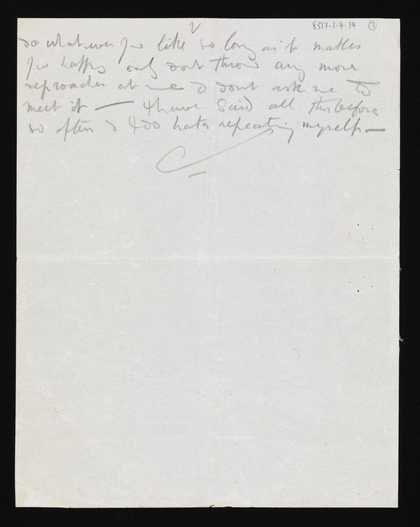 2
8517-1-4-14 (1)
do whatever you like so long as it makes
you happy only dont throw any more
reproaches at me & dont ask me to
meet it — I have said all this before
so often & I do hate repeating myself —
C